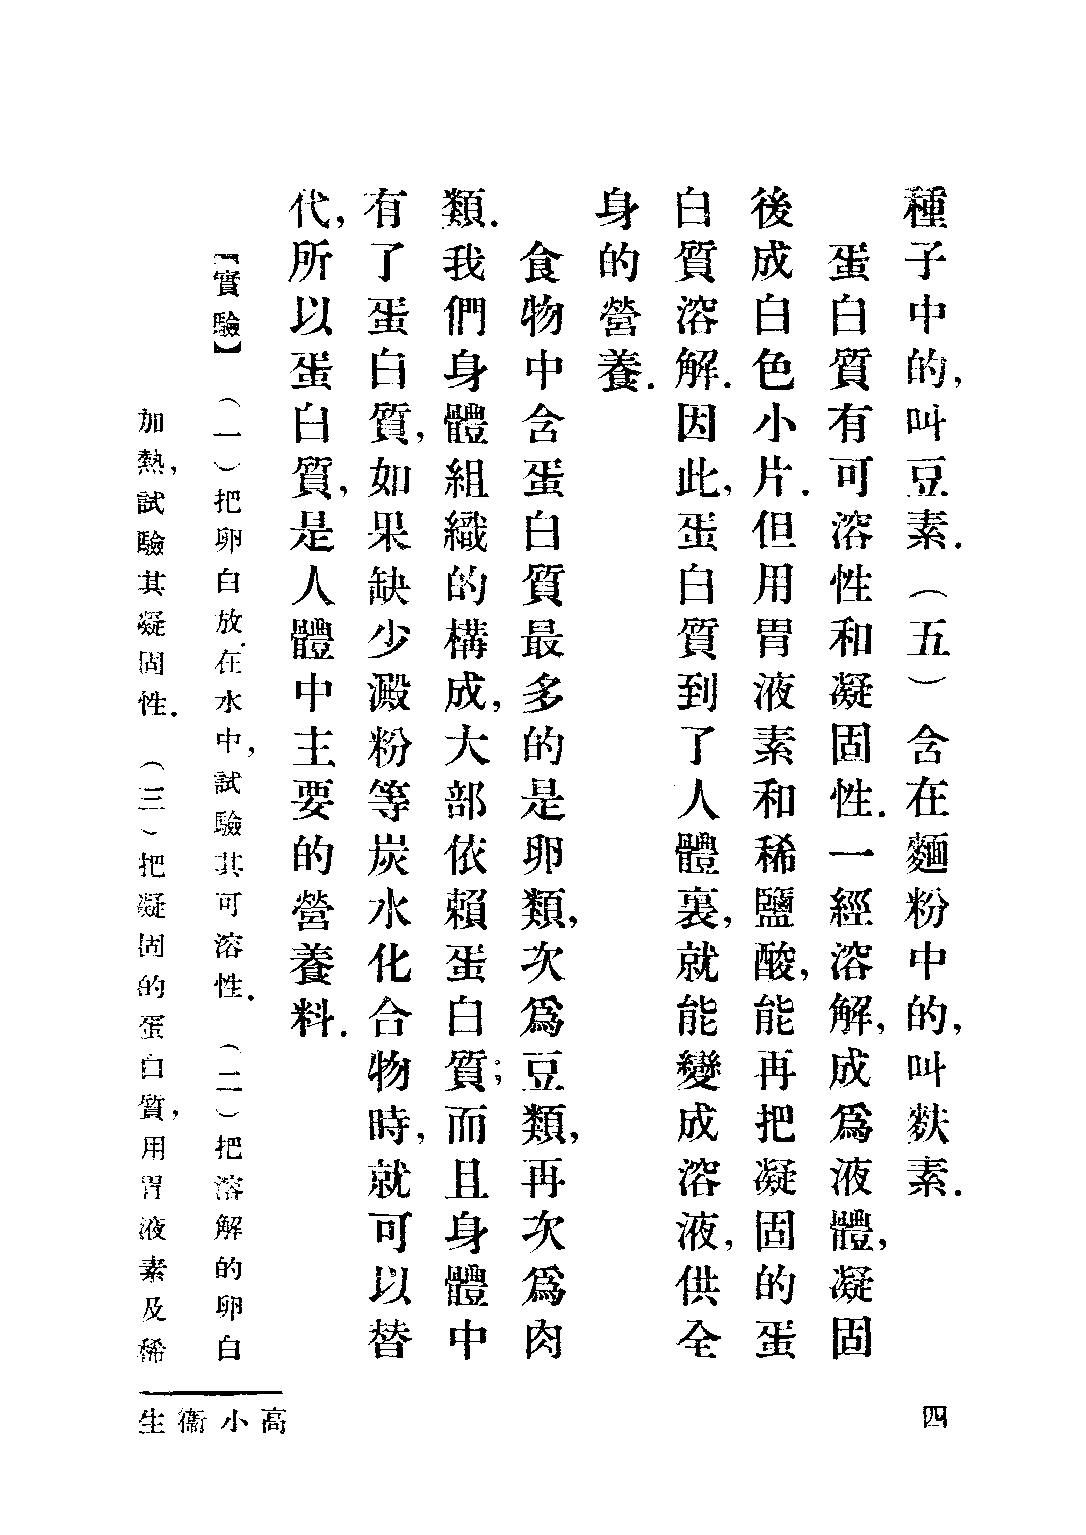 種子中的,叫豆素.(五)含在麵粉中的,叫麩素.
蛋白質有可溶性和凝固性.一經溶解,成爲液體,凝固
後成白色小片.但用胃液素和稀鹽酸,能再把凝固的蛋
白質溶解.因此,蛋白質到了人體裏,就能變成溶液,供全
身的營養.
食物中含蛋白質最多的是卵類,次爲豆類,再次爲肉
類.我們身體組織的構成,大部依賴蛋白質;而且身體中
有了蛋白質,如果缺少澱粉等炭水化合物時,就可以替
代,所以蛋白質,是人體中主要的營養料.
【實驗】(一)把卵白放在水中,試驗其可溶性.(二)把溶解的卵白
加熱,試驗其凝固性.(三)把凝固的蛋白質,用胃液素及稀
高小衞生
四